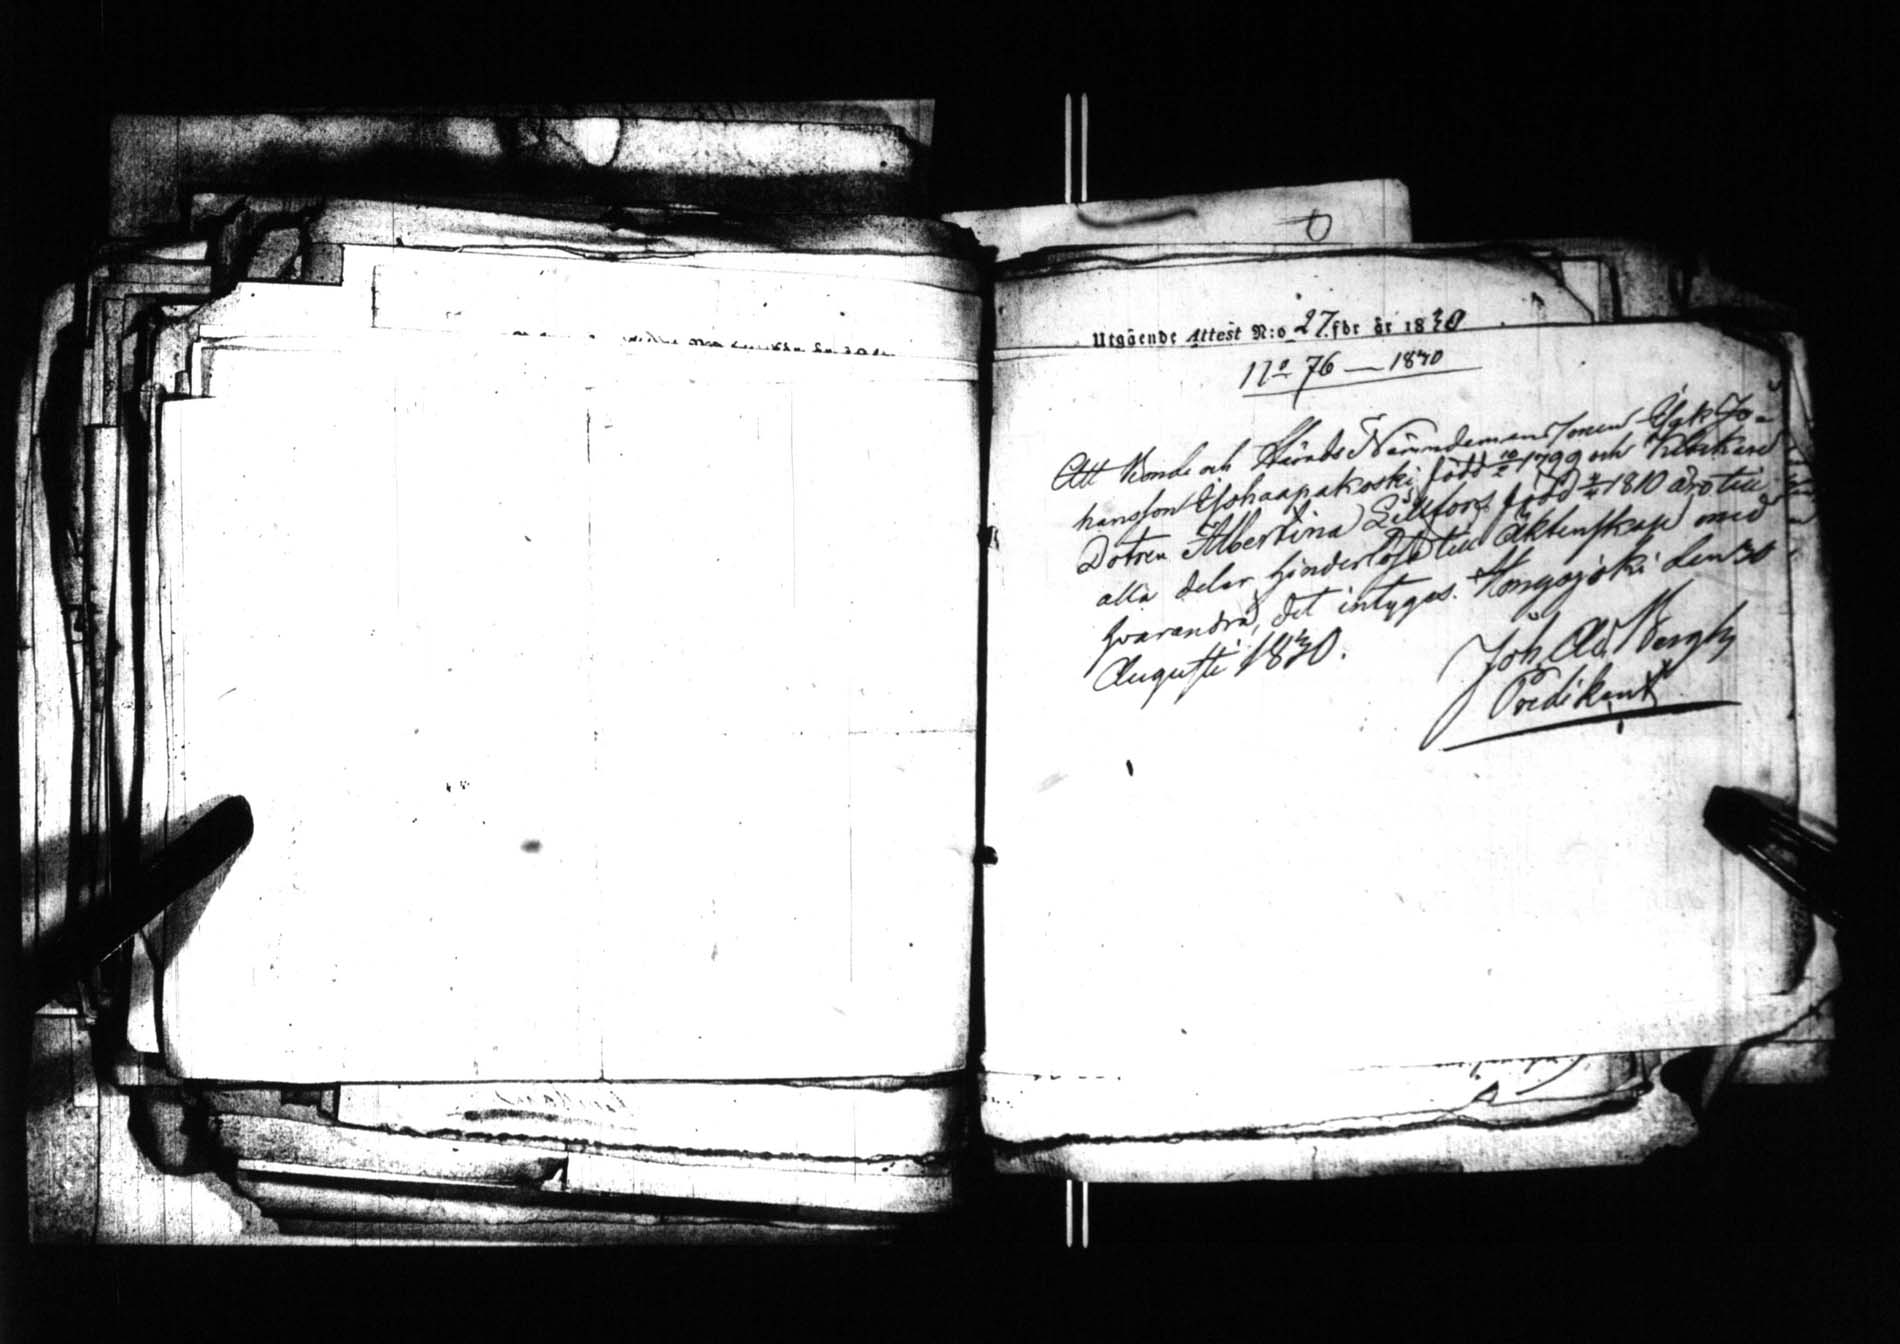 Utgående Attest N:o 27 för år 1830
No 76 — 1830
Att Bonde och Härads Nämndemans Sonen Jo-
hansson född 10/2 1799 och Klockare
Dotren Albertina Lillfors född 1810 äro till
alla delar hinderlöse till Äktenskap med
hvarandra, det intygas. den 30
Augusti 1830.
Joh. Ad. Bergh
Predikant